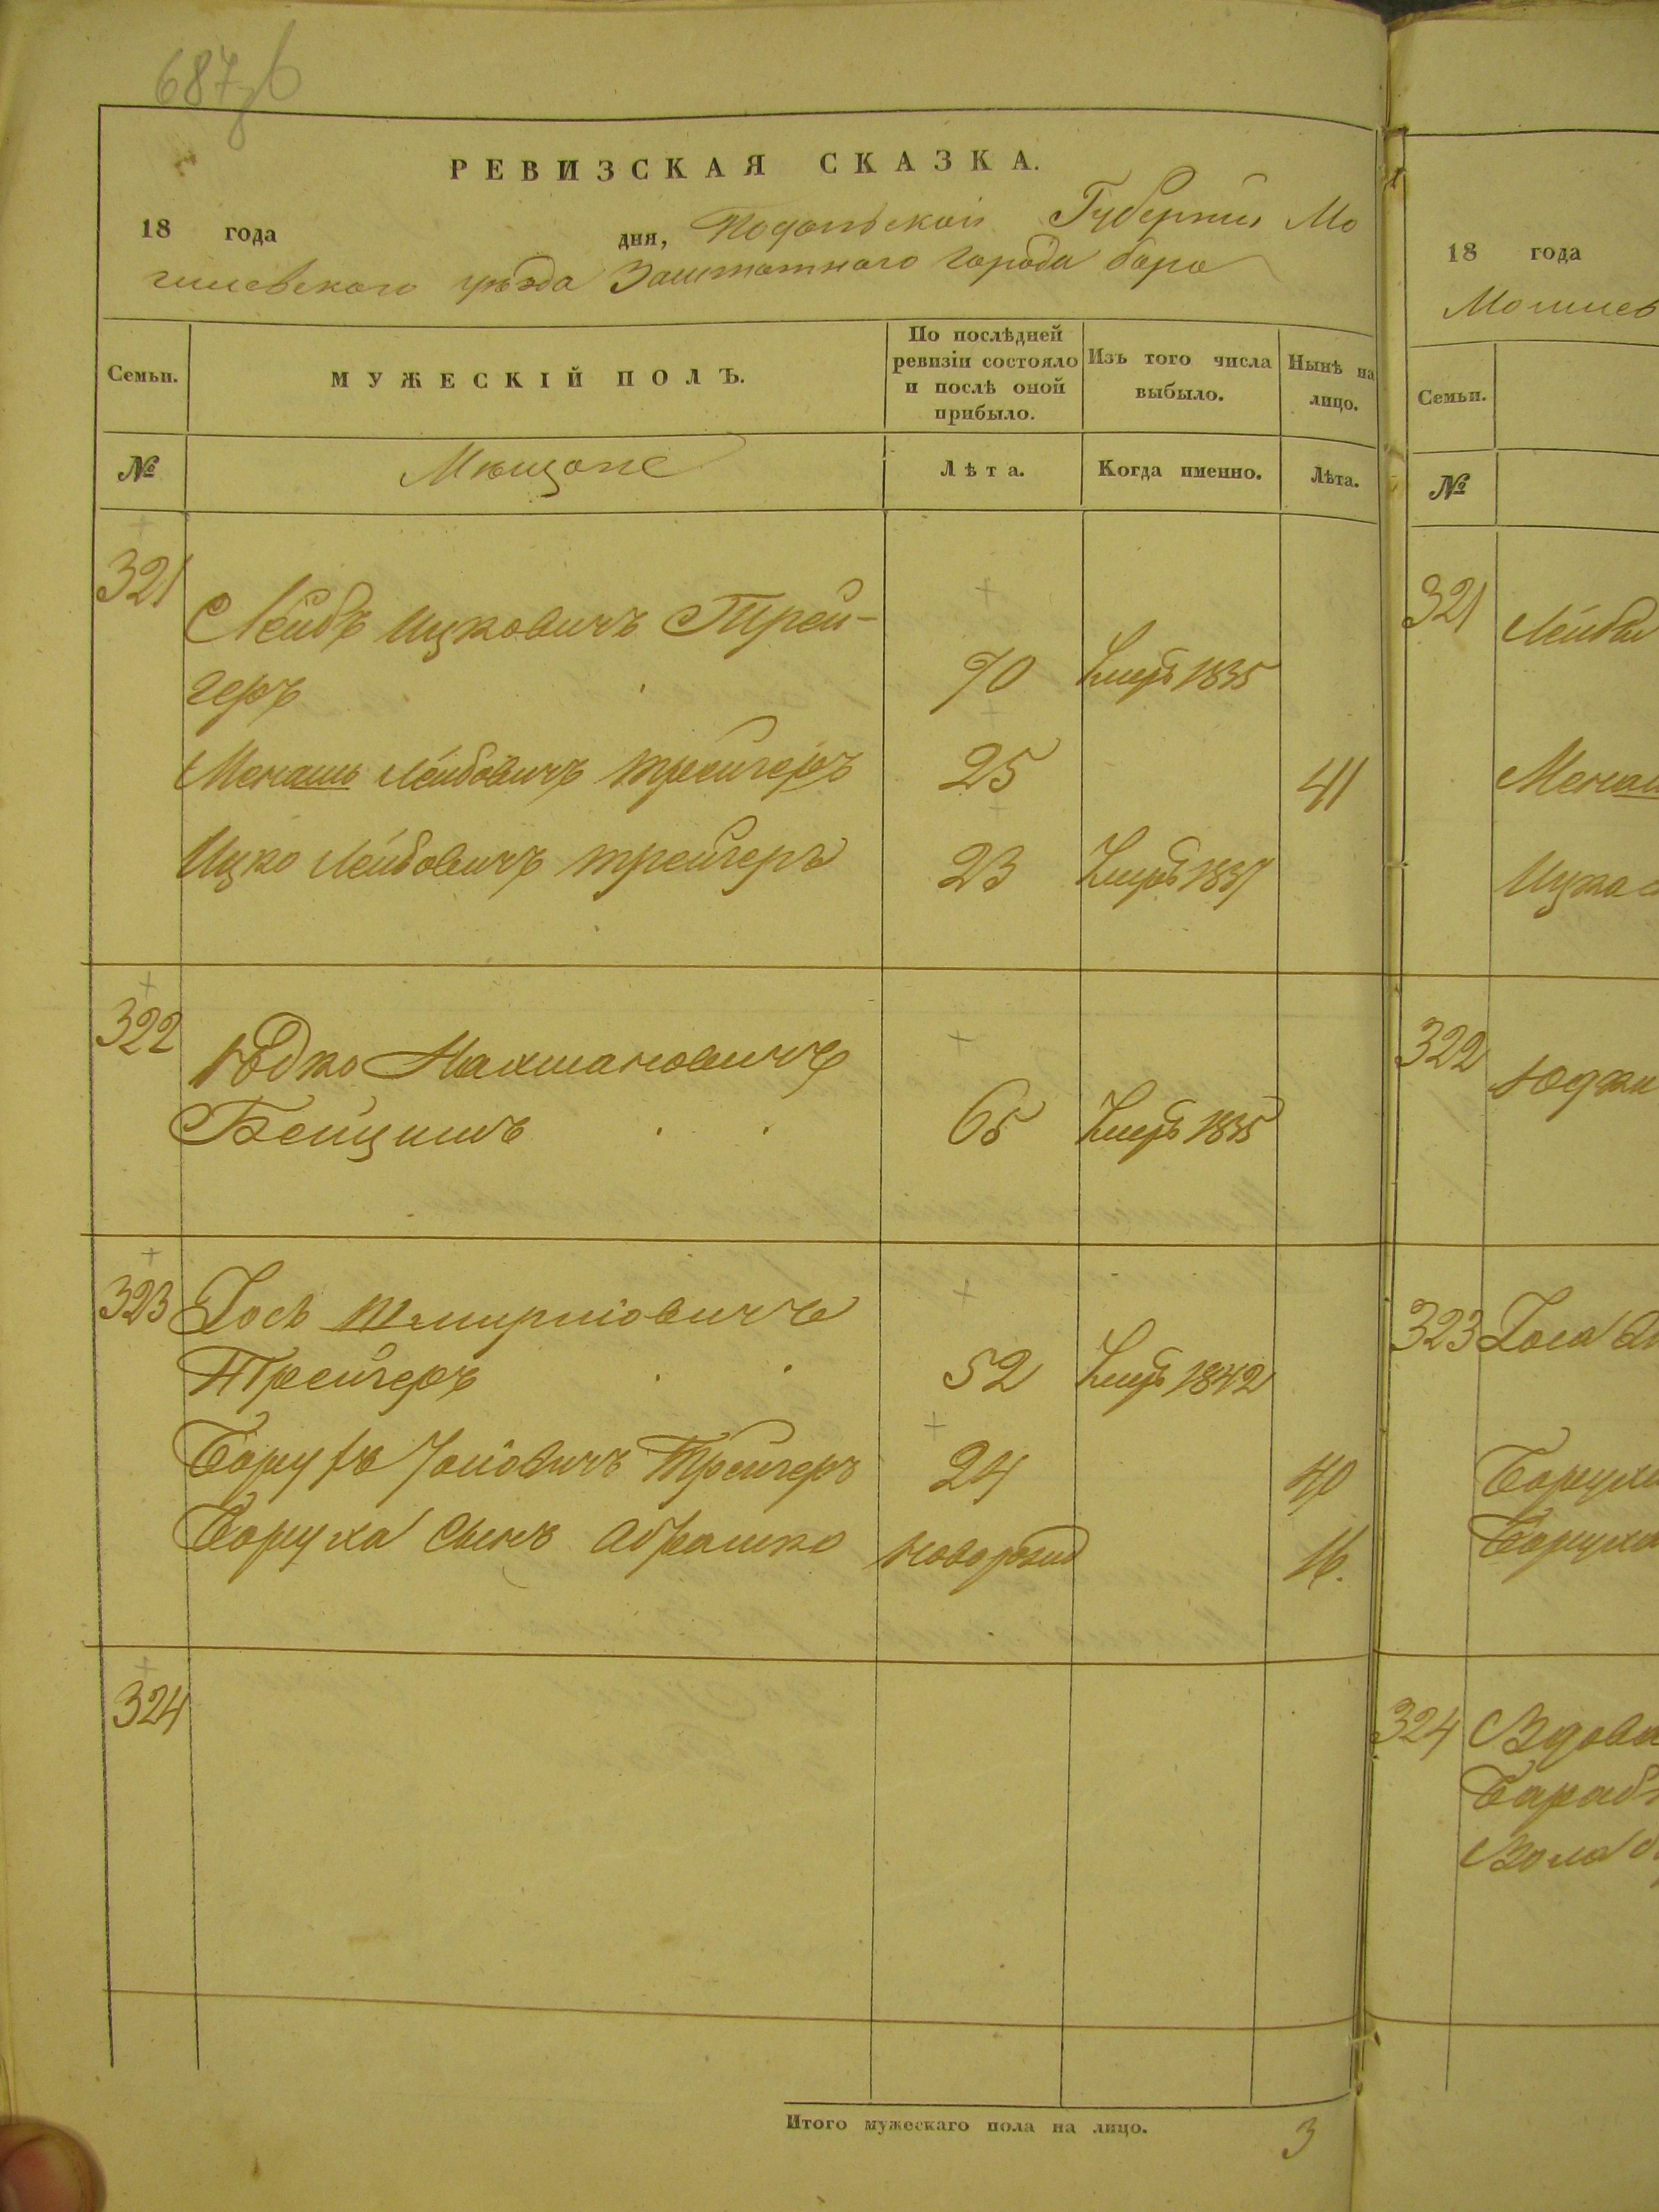 687 об
РЕВИЗСКАЯ СКАЗКА.
18 года дня, Подольской Губернии Мо
гилевского уѣзда Заштатного города бара
Семьи.
МУЖЕСКІЙ ПОЛЪ.
По послѣдней
ревизіи состояло
и послѣ оной
прибыло.
Изъ того числа
выбыло.
Нынѣ на
лицо.
№
Мѣщане
Лѣта.
Когда именно.
Лѣта.
321
Лейбъ Ицковичъ Трей-
геръ 70 умеръ 1835
Менашъ Лейбовичъ трейгеръ 25 41
Ицко Лейбовичъ трейгеръ 23 умеръ 1837
322
Юдко Нахмановичъ
65 умеръ 1835
323 Іось
Трейгеръ 52 умеръ 1842
Борухъ Іосіовичъ Трейгеръ 24 40
Боруха сынъ Абрамко новорожд 16.
324
Итого мужескаго пола на лицо. 3
18 года
Могилев
Семьи.
№
321 Лейбы
Менаш
Ицка
322 Юдки
323 Іося
Боруха
Боруха
324 Вдова